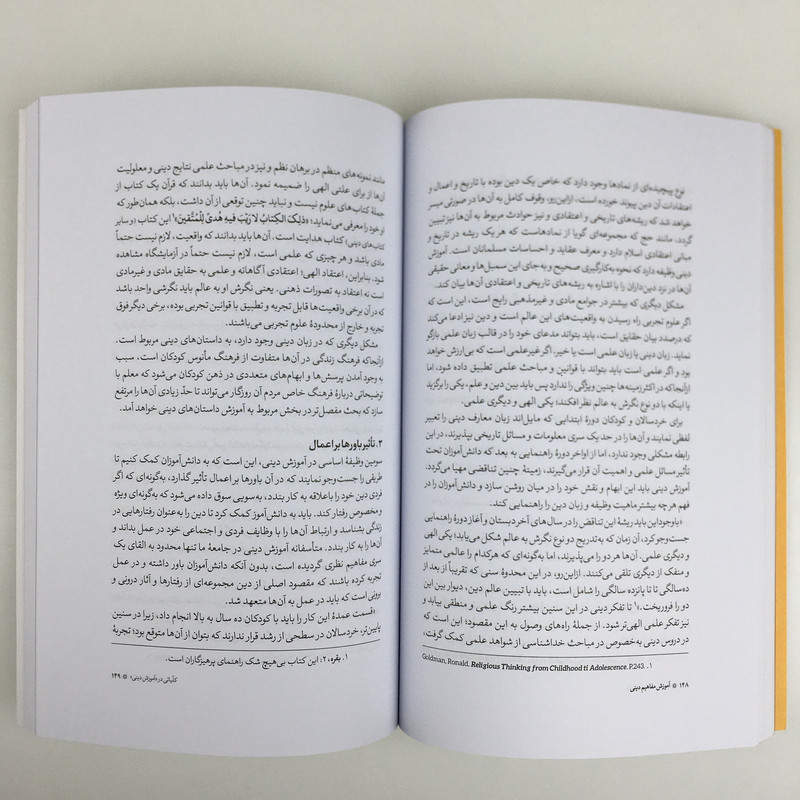 نوع پیچیده‌ای از نمادها وجود دارد که خاص یک دین بوده با تاریخ و اعمال و
اعتقادات آن دین پیوند خورده است. ازاین‌رو، وقوف کامل به آن‌ها در صورتی میسر
خواهد شد که ریشه‌های تاریخی و اعتقادی و نیز حوادث مربوط به آن‌ها نیز تبیین
گردد، مانند حج که مجموعه‌ای گویا از نمادهاست که هر یک ریشه در تاریخ و
مبانی اعتقادی اسلام دارد و معرف عقاید و احساسات مسلمانان است. آموزش
دینی وظیفه دارد که نحوه به‌کارگیری صحیح و به‌جای این سمبل‌ها و معانی حقیقی
آن‌ها در نزد دین‌داران را با اشاره به ریشه‌های تاریخی و اعتقادی آن‌ها بیان کند.
مشکل دیگری که بیشتر در جوامع مادی و غیرمذهبی رایج است، این است که
اگر علوم تجربی راه رسیدن به واقعیت‌های این عالم است و دین نیز ادعا می‌کند
که درصدد بیان حقایق است، باید بتواند مدعای خود را در قالب زبان علمی بازگو
نماید. زبان دینی یا زبان علمی است یا خیر. اگر غیرعلمی است که بی‌ارزش خواهد
بود و اگر علمی است باید بتواند با قوانین و مباحث علمی تطبیق داده شود، اما
ازآنجاکه در اکثر زمینه‌ها چنین ویژگی را ندارد پس باید بین دین و علم، یکی را برگزید
یا اینکه با دو نوع نگرش به عالم نظر افکند؛ یکی الهی و دیگری علمی.
برای خردسالان و کودکان دورهٔ ابتدایی که مایل‌اند زبان معارف دینی را تعبیر
لفظی نمایند و آن‌ها را در حد یک سری معلومات و مسائل تاریخی بپذیرند، در این
رابطه مشکلی وجود ندارد، اما از اواخر دورهٔ راهنمایی به بعد که دانش‌آموزان تحت
تأثیر مسائل علمی و اهمیت آن قرار می‌گیرند، زمینهٔ چنین تناقضی مهیا می‌گردد.
آموزش دینی باید این ابهام و نقش خود را در میان روشن سازد و دانش‌آموزان را در
فهم هرچه بیشتر ماهیت وظیفه و زبان دین را راهنمایی کند.
«باوجوداین باید ریشهٔ این تناقض را در سال‌های آخر دبستان و آغاز دورهٔ راهنمایی
جست‌وجو کرد، آن زمان که به‌تدریج دو نوع نگرش به عالم شکل می‌یابد؛ یکی الهی
و دیگری علمی. آن‌ها هر دو را می‌پذیرند، اما به‌گونه‌ای که هرکدام را عالمی متمایز
و منفک از دیگری تلقی می‌کنند. ازاین‌رو، در این محدودهٔ سنی که تقریباً از بعد از
ده‌سالگی تا تا پانزده سالگی را شامل است، باید با تبیین عالم دین، دیوار بین این
دو را فروریخت.»۱ تا تفکر دینی در این سنین بیشتر رنگ علمی و منطقی بیابد و
نیز تفکر علمی الهی‌تر شود. از جملهٔ راه‌های وصول به این مقصود؛ این است که
در دروس دینی به‌خصوص در مباحث خداشناسی از شواهد علمی کمک گرفت،
Goldman, Ronald. Religious Thinking from Childhood ti Adolescence. P.243. .۱
۱۴۸ آموزش مفاهیم دینی
مانند نمونه‌های منظم در برهان نظم و نیز در مباحث علمی نتایج دینی و معلولیت
آن‌ها از برای علتی الهی را ضمیمه نمود. آن‌ها باید بدانند که قرآن یک کتاب از
جملهٔ کتاب‌های علوم نیست و نباید چنین توقعی از آن داشت، بلکه همان‌طور که
خود را معرفی می‌نماید؛ «ذلِكَ الكِتابُ لا رَيْبَ فيهِ هُدىً لِلْمُتَّقينَ»۱ این کتاب (و سایر
کتاب‌های دینی) کتاب هدایت است. آن‌ها باید بدانند که واقعیت، لازم نیست حتماً
مادی باشد و هر چیزی که علمی است، لازم نیست حتماً در آزمایشگاه مشاهده
شود. بنابراین، اعتقاد الهی؛ اعتقادی آگاهانه و علمی به حقایق مادی و غیرمادی
است نه اعتقاد به تصورات ذهنی. یعنی نگرش او به عالم باید نگرشی واحد باشد
که در آن برخی واقعیت‌ها قابل تجربه و تطبیق با قوانین تجربی بوده، برخی دیگر فوق
تجربه و خارج از محدودهٔ علوم تجربی می‌باشند.
مشکل دیگری که در زبان دینی وجود دارد، به داستان‌های دینی مربوط است.
ازآنجاکه فرهنگ زندگی در آن‌ها متفاوت از فرهنگ مأنوس کودکان است، سبب
به وجود آمدن پرسش‌ها و ابهام‌های متعددی در ذهن کودکان می‌شود که معلم با
توضیحاتی دربارهٔ فرهنگ خاص مردم آن روزگار می‌تواند تا حدّ زیادی آن‌ها را مرتفع
سازد که بحث مفصل‌تر در بخش مربوط به آموزش داستان‌های دینی خواهد آمد.
۳. تأثیر باورها بر اعمال
سومین وظیفهٔ اساسی در آموزش دینی، این است که به دانش‌آموزان کمک کنیم تا
طریقی را جست‌وجو نمایند که در آن باورها بر اعمال تأثیر گذارد، به‌گونه‌ای که اگر
فردی دین خود را باعلاقه به کار بندد، به‌سویی سوق داده می‌شود که به‌گونه‌ای ویژه
و مخصوص رفتار کند. باید به دانش‌آموز کمک کرد تا دین را به‌عنوان رفتارهایی در
زندگی بشناسد و ارتباط آن‌ها را با وظایف فردی و اجتماعی خود در عمل بداند و
آن‌ها را به کار بندد. متأسفانه آموزش دینی در جامعهٔ ما تنها محدود به القای یک
سری مفاهیم نظری گردیده است، بدون آنکه دانش‌آموزان باور داشته و در عمل
تجربه کرده باشند که مقصود اصلی از دین مجموعه‌ای از رفتارها و آثار درونی و
برونی است که باید در عمل به آن‌ها متعهد شد.
«قسمت عمدهٔ این کار را باید با کودکان ده سال به بالا انجام داد، زیرا در سنین
پایین‌تر، خردسالان در سطحی از رشد قرار ندارند که بتوان از آن‌ها متوقع بود؛ تجربهٔ
۱. بقره، ۲: این کتاب بی‌هیچ شک راهنمای پرهیزگاران است.
کلیاتی در «آموزش دینی» ۱۴۹